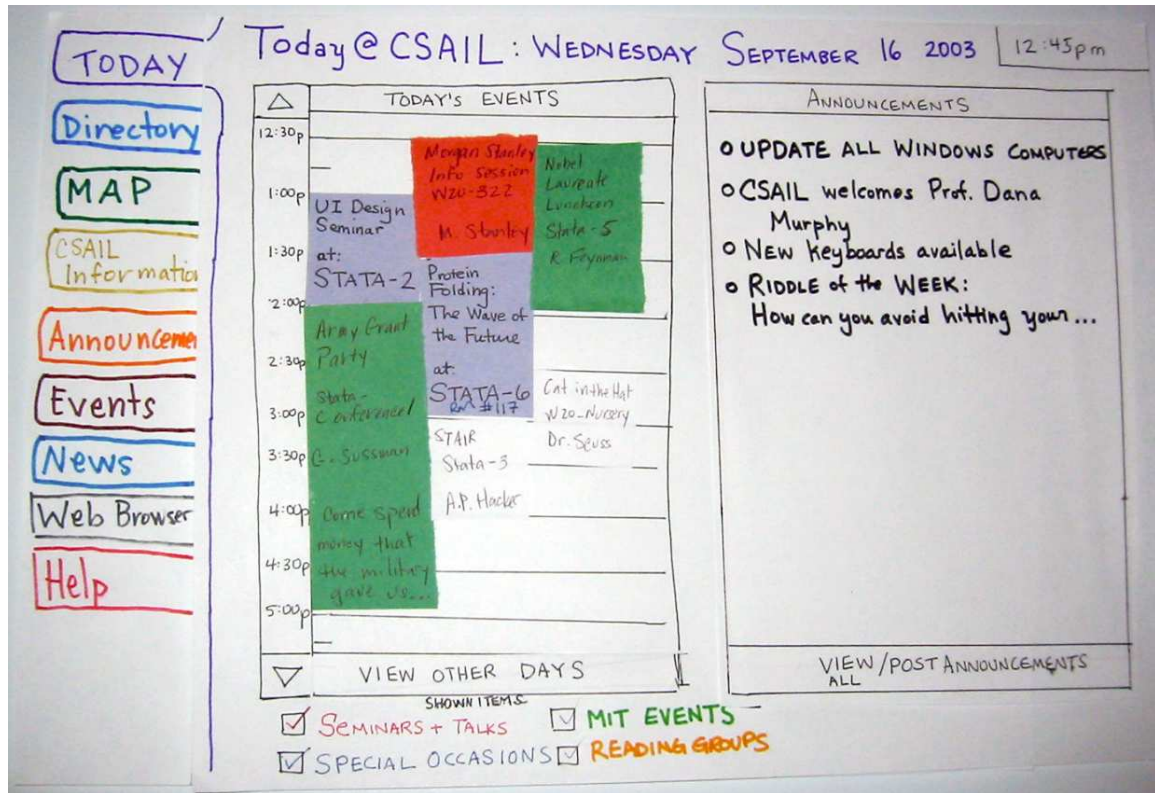 TODAY
Directory
MAP
CSAIL
Informatio
Announcemen
Events
News
Web Browser
Help
Today @ CSAIL: WEDNESDAY SEPTEMBER 16 2003
12:45pm
TODAY'S EVENTS
12:30p
1:00p
1:30p
2:00p
2:30p
3:00p
3:30p
4:00p
4:30p
5:00p
Morgan Stanley
Info Session
W20-322
M. Stanley
Nobel
Laureate
Luncheon
Stata-5
R. Feynman
UI Design
Seminar
at:
STATA-2
Protein
Folding:
The Wave of
the Future
at:
STATA-6
Rm #117
Army Grant
Party
Stata-
Conference1
G. Sussman
Come spend
money that
the military
gave us...
Cat in the Hat
W20-Nursery
Dr. Seuss
STAIR
Stata-3
A.P. Hacker
VIEW OTHER DAYS
ANNOUNCEMENTS
UPDATE ALL WINDOWS COMPUTERS
CSAIL welcomes Prof. Dana
Murphy
New Keyboards available
RIDDLE of the WEEK:
How can you avoid hitting your ...
VIEW/POST ANNOUNCEMENTS
ALL
SHOWN ITEMS
SEMINARS + TALKS
MIT EVENTS
SPECIAL OCCASIONS
READING GROUPS